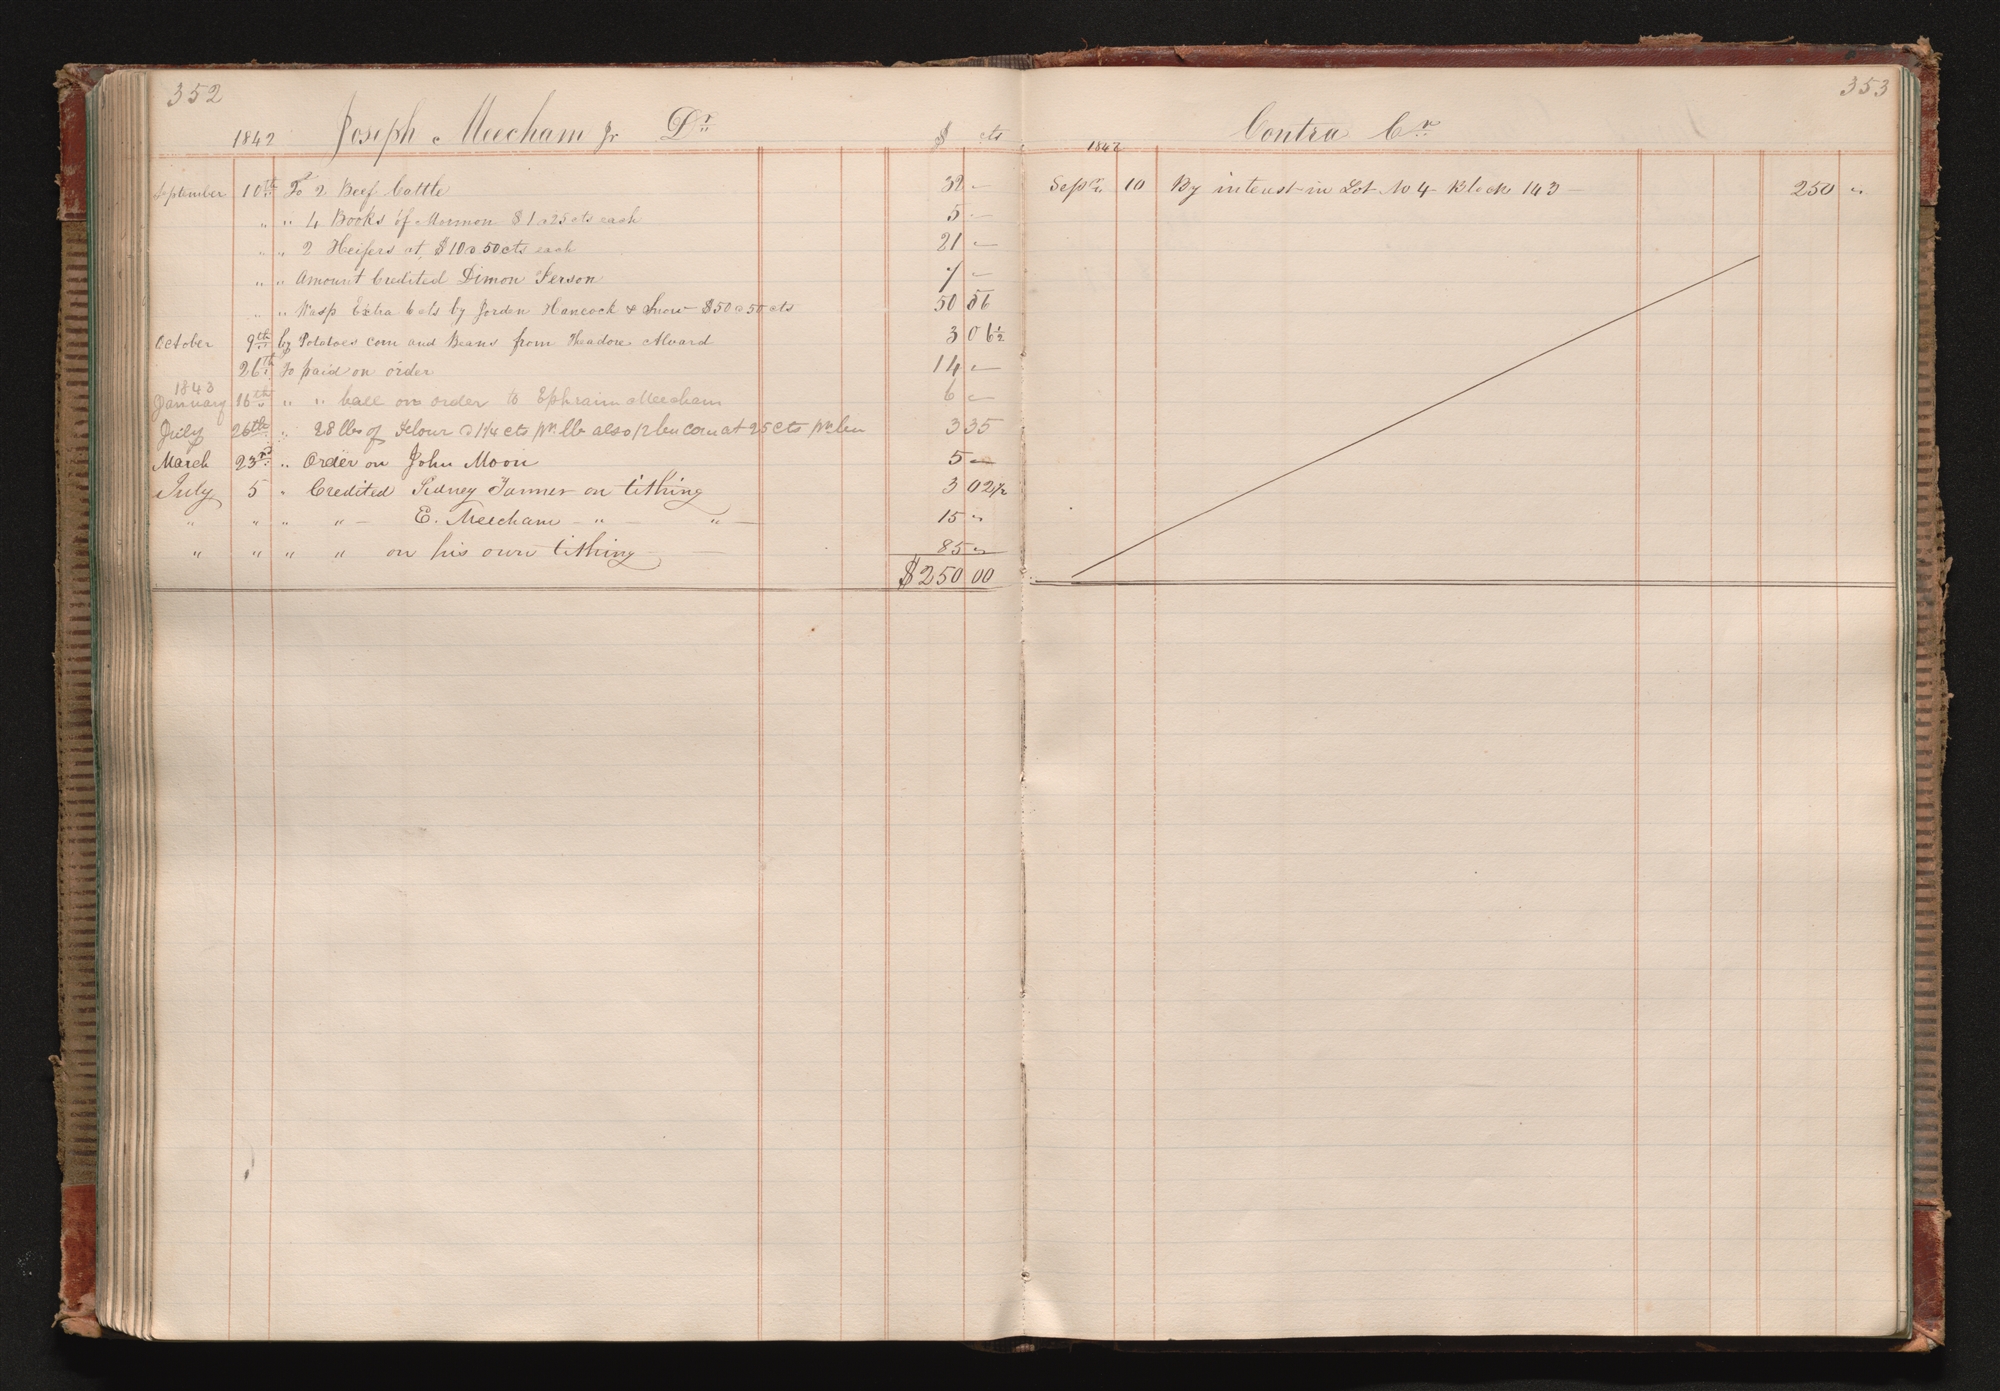 352
1842 Joseph Meecham Jr Dr $ cts
September 10th To 2 Beef Cattle 32 "
" " 4 Books of Mormon $1.25 cts each 5 "
" " 2 Heifers at $10.50 cts each 21 "
" " Amount Credited Dimon Person 7 "
" " Wasp Extra by Jorden Hancock & Snow $50.50 cts 50 56
October 9th by Potatoes corn and Beans from Theadore Alvard 3 06½
26th To paid on order 14 "
1843
January 16th " " ball on order to Ephraim Meecham 6 "
July 26th " 28 lbs of Flour 1¼ cts pr lb also 12 bu corn at 25 cts pr bu 3 35
March 23rd " Order on John Moon 5 "
July 5 " Credited Sidney Tanner on tithing 3 02½
" " " " E. Meecham " " 15 "
" " " " on his own tithing 85 "
$250 00
353
Contra Cr
1842
Sepr 10 By interest in Lot No 4 Block 143 250 "